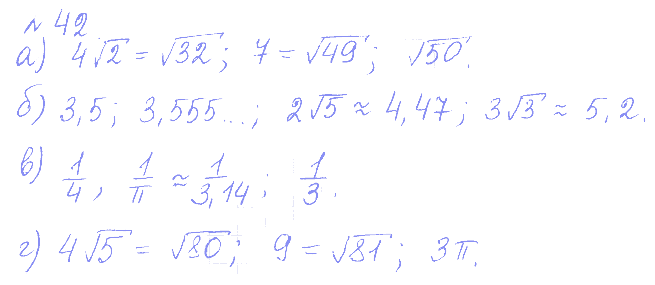 № 42
а) 4√2 = √32; 7 = √49; √50.
б) 3,5; 3,555...; 2√5 ≈ 4,47; 3√3 ≈ 5,2.
в) 1/4, 1/π ≈ 1/3,14; 1/3.
г) 4√5 = √80; 9 = √81; 3π.